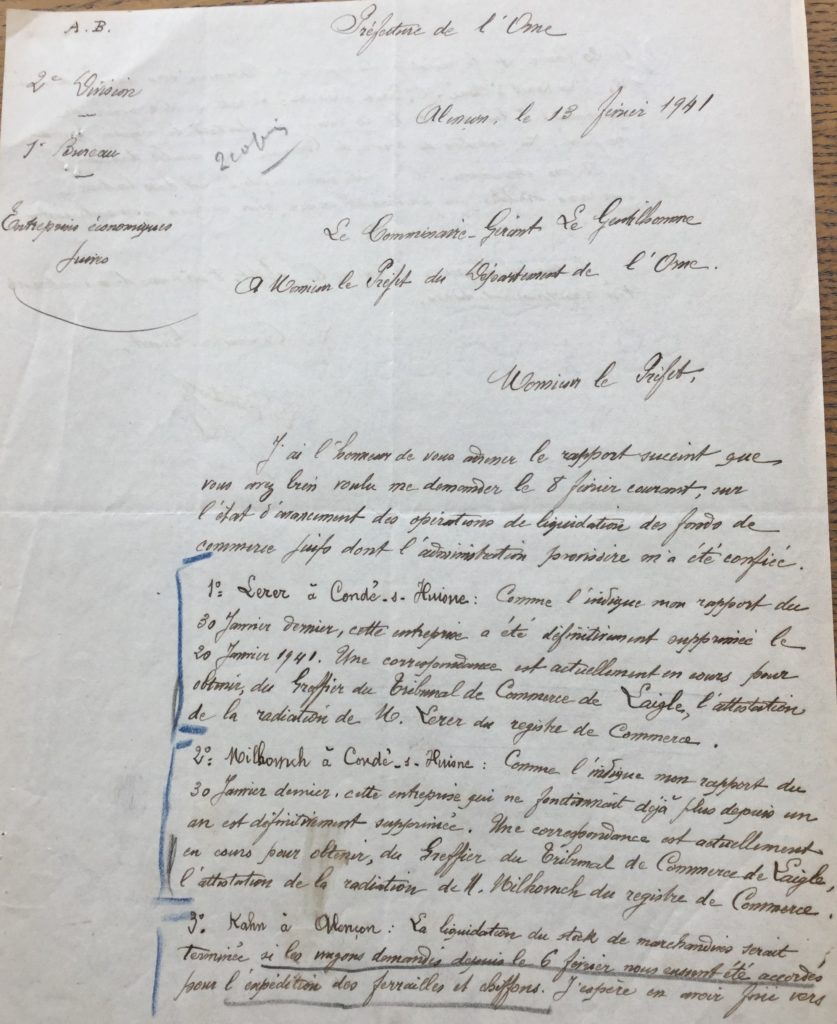 A. B.
Préfecture de l'Orne
2e Division
Alençon, le 13 février 1941
1e Bureau
2 copies
Entreprises économiques
juives
Le Commissaire-Gérant Le Gentilhomme
A Monsieur le Préfet du Département de l'Orne.
Monsieur le Préfet,
J'ai l'honneur de vous adresser le rapport succint que
vous avez bien voulu me demander le 8 février courant, sur
l'état d'avancement des opérations de liquidation des fonds de
commerce juifs dont l'administration provisoire m'a été confiée.
1o: Lerer à Condé-s-Huisne: Comme l'indique mon rapport du
30 Janvier dernier, cette entreprise a été définitivement supprimée le
20 Janvier 1941. Une correspondance est actuellement en cours pour
obtenir, du Greffier du Tribunal de Commerce de Laigle, l'attestation
de la radiation de M. Lerer du registre de Commerce.
2o: à Condé-s-Huisne: Comme l'indique mon rapport du
30 Janvier dernier, cette entreprise qui ne fonctionnait déjà plus depuis un
an est définitivement supprimée. Une correspondance est actuellement
en cours pour obtenir, du Greffier du Tribunal de Commerce de Laigle,
l'attestation de la radiation de M. du registre de Commerce.
3o: Kahn à Alençon: La liquidation du stock de marchandises serait
terminée si les wagons demandés depuis le 6 février nous eussent été accordés
pour l'expédition des ferrailles et chiffons. J'espère en avoir fini vers